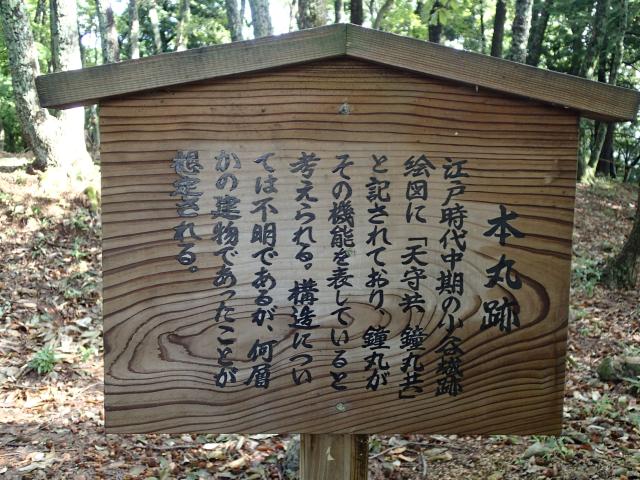 本丸跡
江戸時代中期の小谷城跡
絵図に「天守共鐘丸共」
と記されており、鐘丸が
その機能を表していると
考えられる。構造につい
ては不明であるが、何層
かの建物であったことが
想定される。